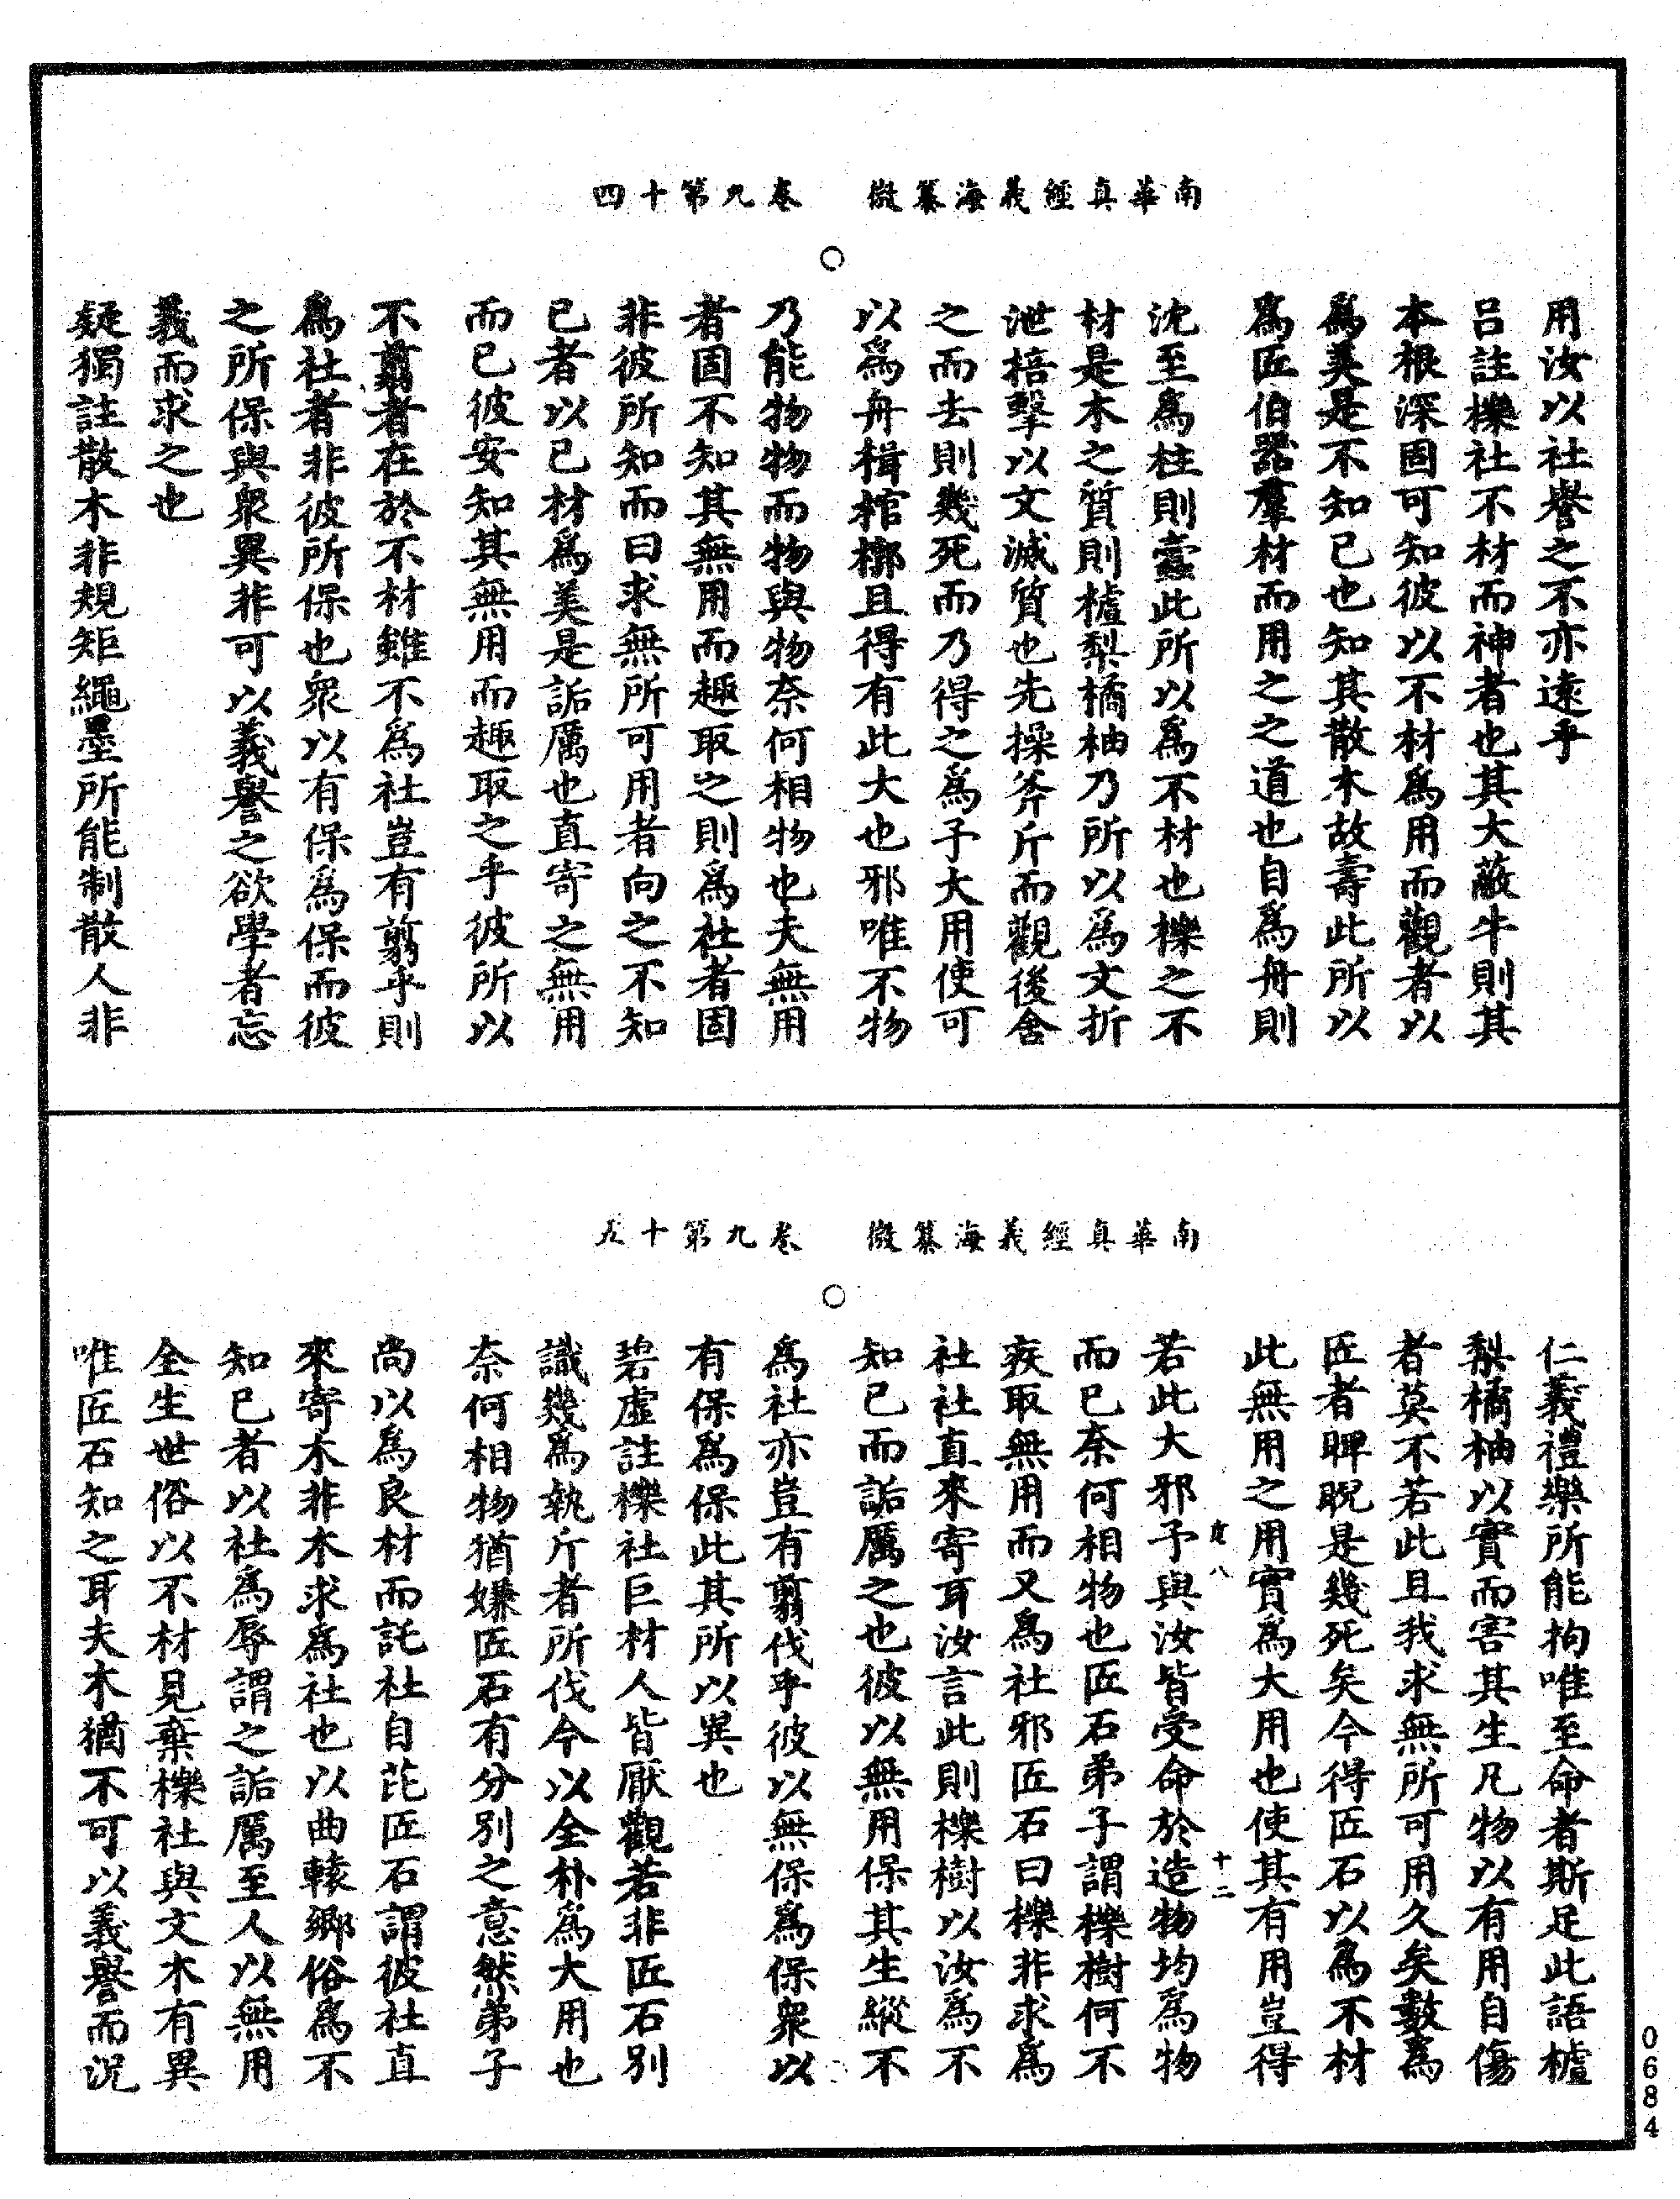 南華真經義海纂微　卷九第十四
○
用汝以社譽之不亦遠乎
呂註櫟社不材而神者也其大蔽牛則其
本根深固可知彼以不材為用而觀者以
為美是不知已也知其散木故壽此所以
為匠伯器羣材而用之之道也自為舟則
沈至為柱則蠹此所以為不材也櫟之不
材是木之質則樝梨橘柚乃所以為文折
泄掊擊以文滅質也先操斧斤而觀後舍
之而去則幾死而乃得之為子大用使可
以為舟楫棺槨且得有此大也邪唯不物
乃能物物而物與物奈何相物也夫無用
者固不知其無用而趣取之則為社者固
非彼所知而曰求無所可用者向之不知
已者以已材為美是詬厲也直寄之無用
而已彼安知其無用而趣取之乎彼所以
不翦者在於不材雖不為社豈有翦乎則
為社者非彼所保也衆以有保為保而彼
之所保與衆異非可以義譽之欲學者忘
義而求之也
疑獨註散木非規矩繩墨所能制散人非
南華真經義海纂微　卷九第十五
○
仁義禮樂所能拘唯至命者斯足此語樝
梨橘柚以實而害其生凡物以有用自傷
者莫不若此且我求無所可用久矣數為
匠者睥睨是幾死矣今得匠石以為不材
此無用之用實為大用也使其有用豈得
若此大邪予與汝皆受命於造物均為物
而已奈何相物也匠石弟子謂櫟樹何不
疾取無用而又為社邪匠石曰櫟非求為
社社直來寄耳汝言此則櫟樹以汝為不
知已而詬厲之也彼以無用保其生縱不
為社亦豈有翦伐乎彼以無保為保衆以
有保為保此其所以異也
碧虛註櫟社巨材人皆厭觀若非匠石別
識幾為執斤者所伐今以全朴為大用也
奈何相物猶嫌匠石有分別之意然弟子
尚以為良材而託社自芘匠石謂彼社直
來寄木非木求為社也以曲轅鄉俗為不
知已者以社為辱謂之詬厲至人以無用
全生世俗以不材見棄櫟社與文木有異
唯匠石知之耳夫木猶不可以義譽而況
八
十二
0684